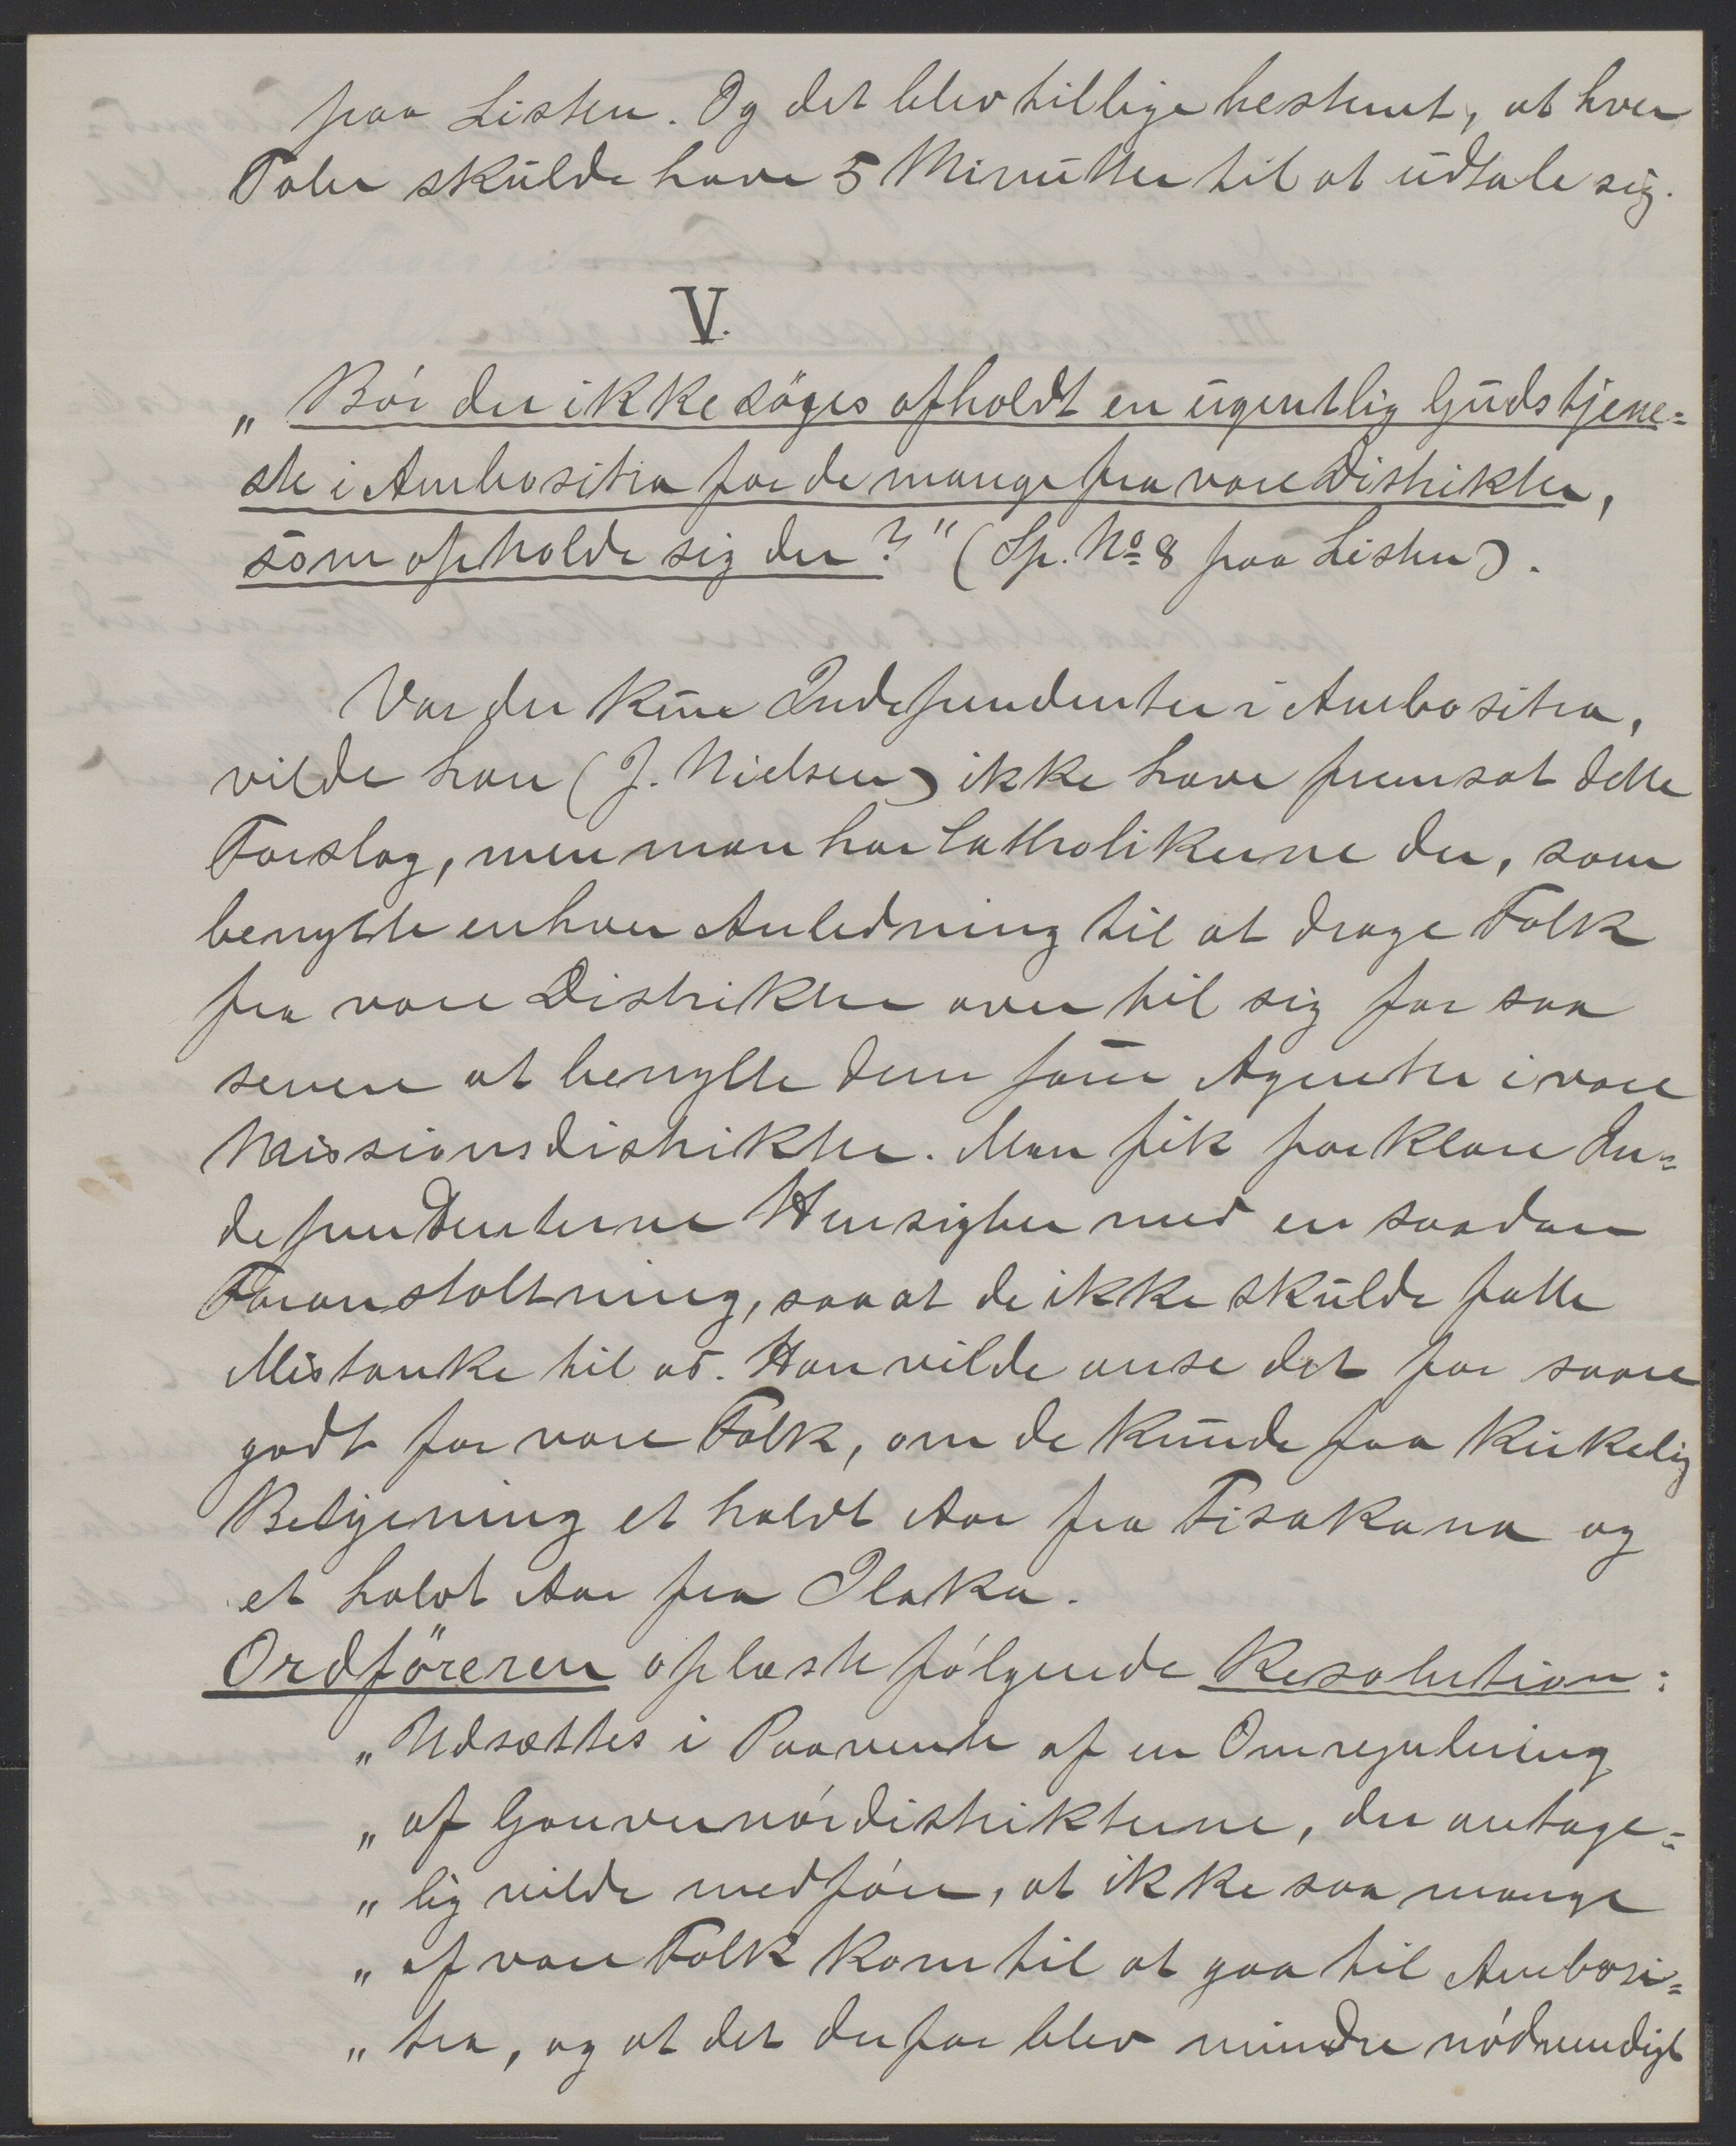 paa Listen. Og det blev tillige bestemt, at hver
Taler skulde have 5 Minutter til at udtale sig.
V.
„Bör der ikke söges afholdt en ugentlig Gudstjene=
ste i Ambositra for de mange fra vore Distrikter,
som opholde sig der?" (Sp. No 8 paa Listen).
Var der kun Independenter i Ambositra,
vilde han (J. Nielsen) ikke have fremsat dette
Forslag, men man har Catholikerne der, som
benytte enhver Anledning til at drage Folk
fra vore Distrikter over til sig for saa
senere at benytte dem som Agenter i vore
Missionsdistrikter. Man fik forklare In=
dependenterne Hensigten med en saadan
Foranstaltning, saa at de ikke skulde fatte
Mistanke til os. Han vilde anse det for saare
godt for vore Folk, om de kunde faa kirkelig
Betjening et halvt Aar fra Fisakana og
et halvt Aar fra Ilaka.
Ordföreren oplæste fölgende Resolution:
„Udsættes i Paavente af en Omregulering
„af Gouvernördistrikterne, der antage=
„lig vilde medföre, at ikke saa mange
„af vore Folk kom til at gaa til Ambosi=
„tra, og at det derfor blev mindre nödvendigt